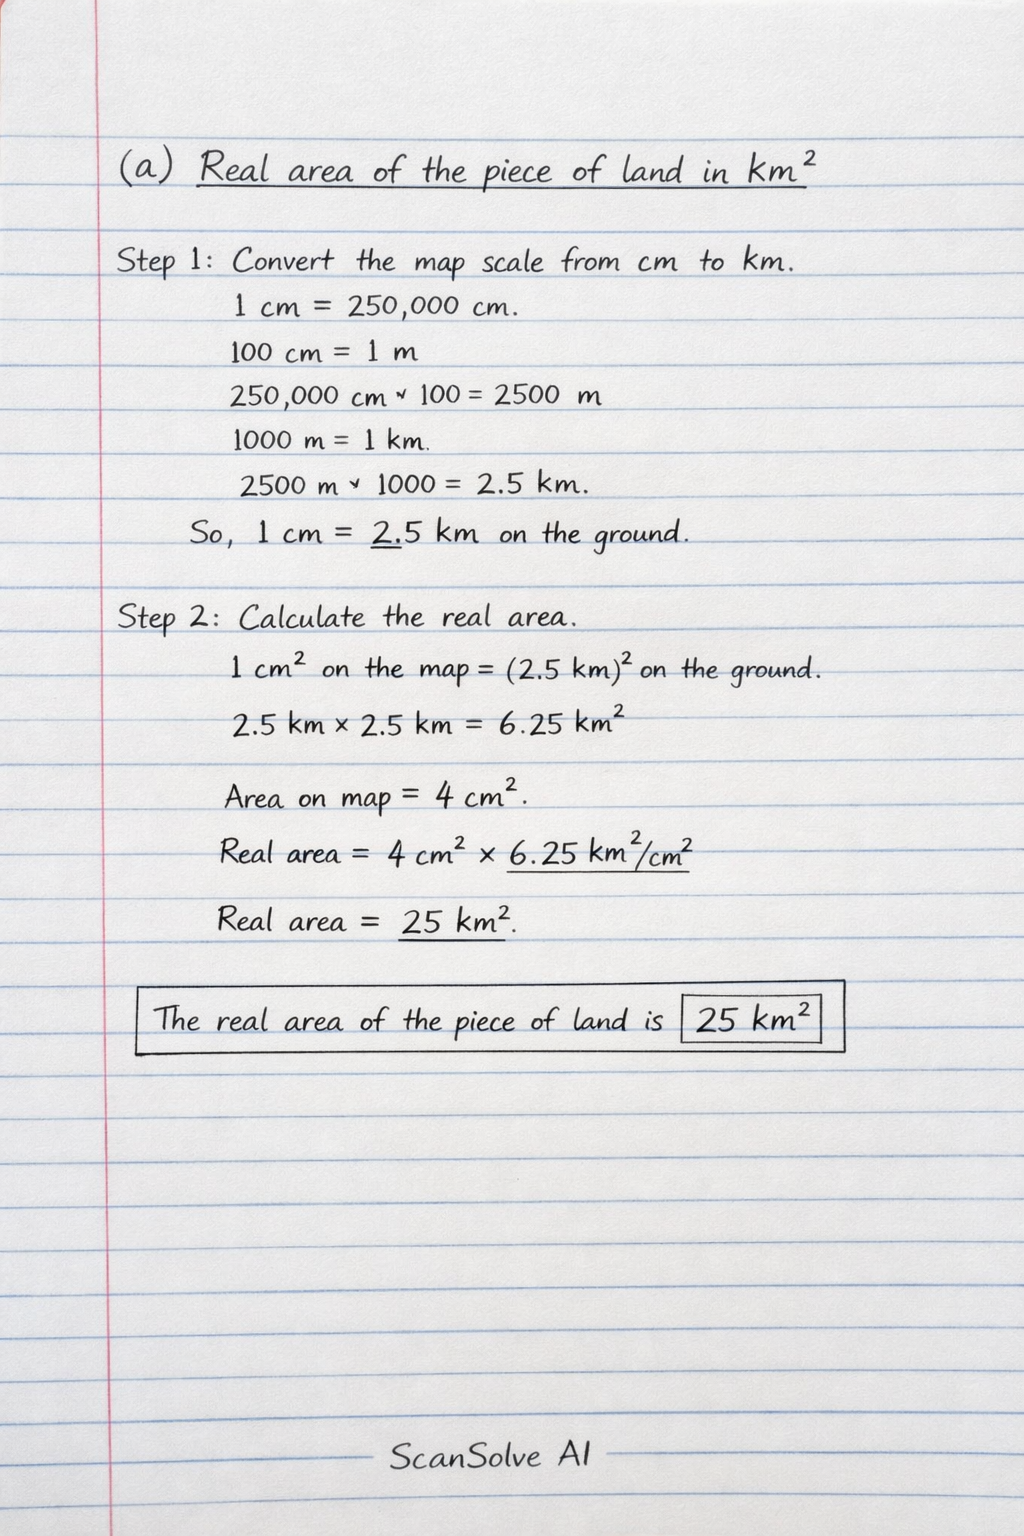 (a) Real area of the piece of land in km²
Step 1: Convert the map scale from cm to km.
1 cm = 250,000 cm.
100 cm = 1 m
250,000 cm ˅ 100 = 2500 m
1000 m = 1 km.
2500 m ˅ 1000 = 2.5 km.
So, 1 cm = 2.5 km on the ground.
Step 2: Calculate the real area.
1 cm² on the map = (2.5 km)² on the ground.
2.5 km × 2.5 km = 6.25 km²
Area on map = 4 cm².
Real area = 4 cm² × 6.25 km²/cm²
Real area = 25 km².
The real area of the piece of land is 25 km²
ScanSolve AI